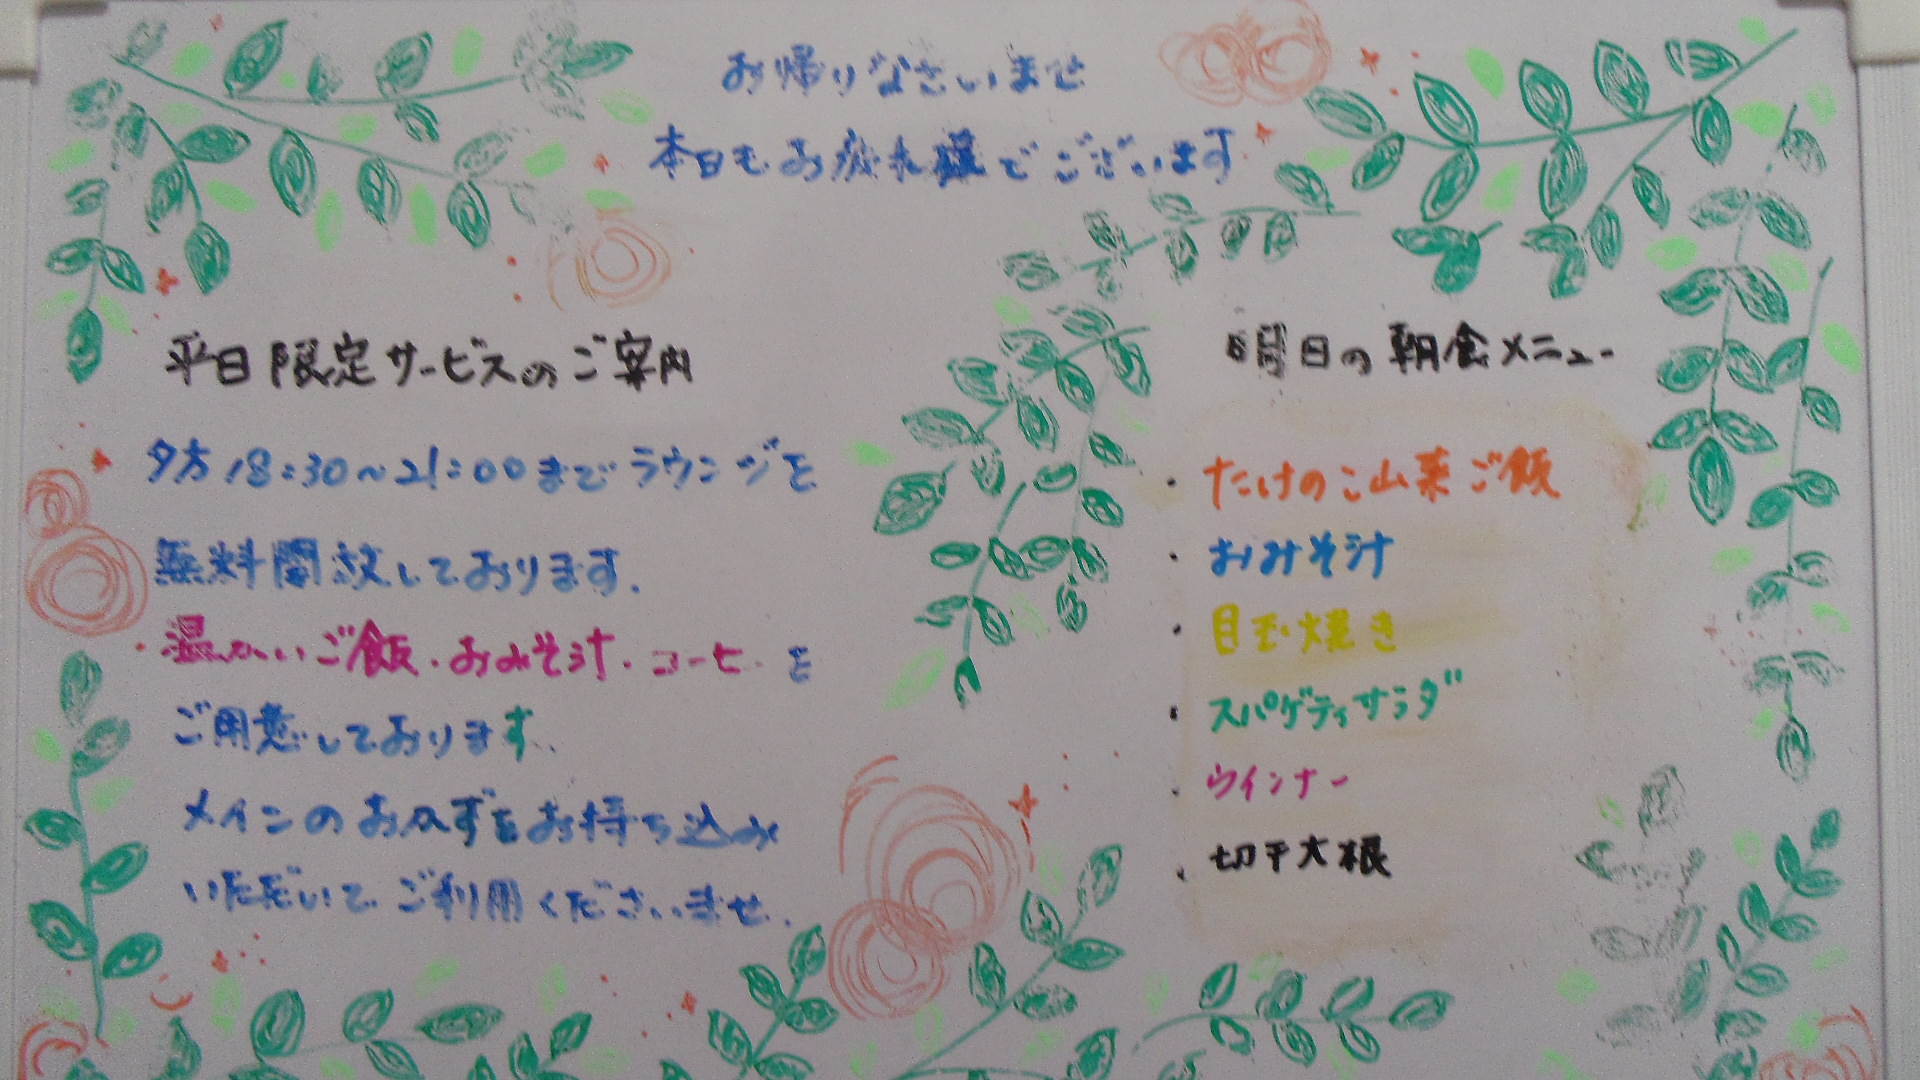 お帰りなさいませ
本日もお疲れ様でございます
平日限定サービスのご案内
夕方18:30～21:00までラウンジを
無料開放しております.
温かいご飯・おみそ汁・コーヒーを
ご用意しております.
メインのおかずをお持ち込み
いただいてご利用くださいませ.
明日の朝食メニュー
・たけのこ山菜ご飯
・おみそ汁
・目玉焼き
・スパゲティサラダ
・ウインナー
・切干大根